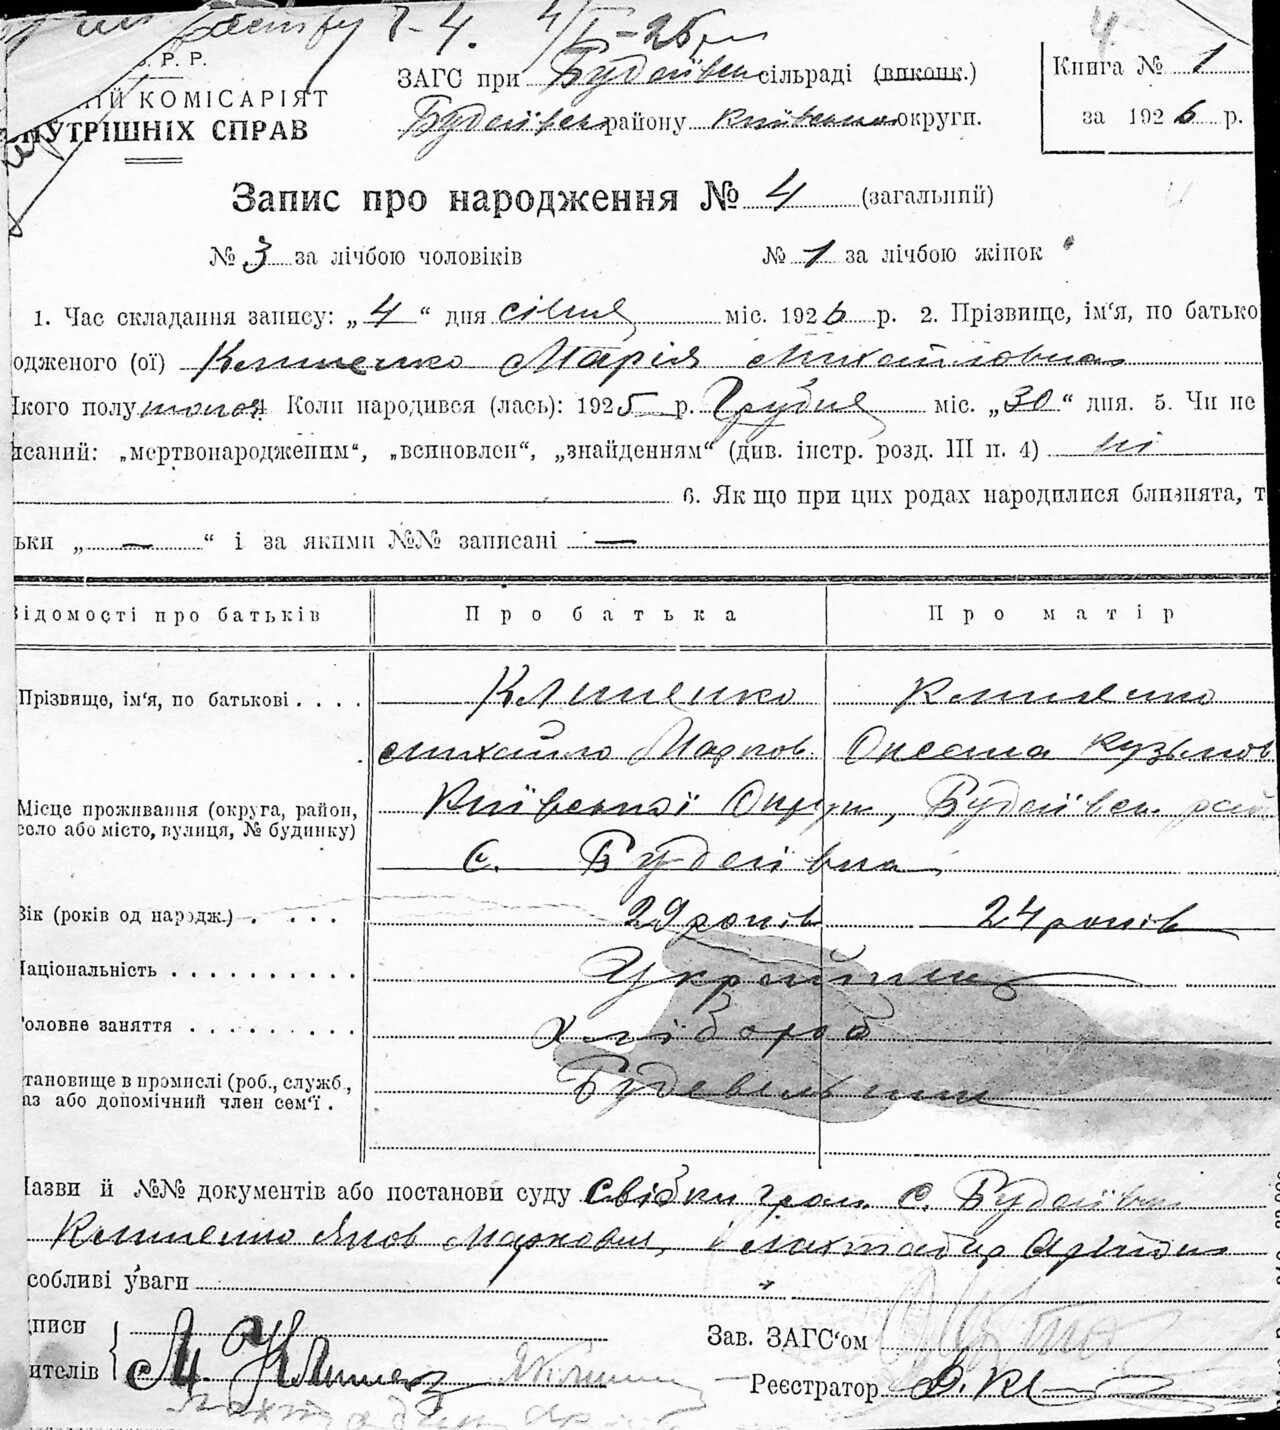 4/I-25
Р. Р.
ІЙ КОМІСАРІЯТ
НУТРІШНІХ СПРАВ
ЗАГС при Будаївськ сільраді (виконк.)
Будаївськ району Київської округи.
4.
Книга № 1
за 1926 р.
Запис про народження № 4 (загальний)
№ 3 за лічбою чоловіків № 1 за лічбою жінок
1. Час складання запису: „4“ дня січня міс. 1926 р. 2. Прізвище, ім'я, по батько
одженого (ої) Клименко Марія Михайловна
Якого полу жіноч Коли народився (лась): 1925 р. Грудня міс. „30“ дня. 5. Чи не
исаний: „мертвонародженим“, „всиновлен“, „знайденням“ (див. інстр. розд. III п. 4) ні
6. Якщо при цих родах народилися близнята, т
ьки „—“ і за якими №№ записані —
Відомості про батьків Про батька Про матір
Прізвище, ім'я, по батькові . . . . Клименко Клименко
Михайло Марков. Оксана Кузьмов
Місце проживання (округа, район, Київської Округи, Будаївськ. рай
село або місто, вулиця, № будинку)
с. Будаївка
Вік (років од народж.) . . . . 29 років 24 років
Національність . . . . . . . . . . Українці
Головне заняття . . . . . . . . . Хлібороб
тановище в промислі (роб., служб.,
аз або допомічний член сем'ї .
Назви й №№ документів або постанови суду Свідки гром. с. Будаївки
Клименко Яков Маркович, і
собливі уваги "
дписи
ителів М. Клименко
Зав. ЗАГС'ом
Реєстратор